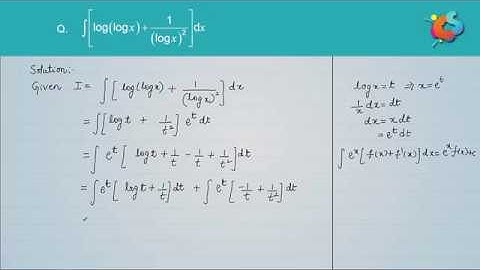 Q. ∫[log(logx) + 1/(logx)²]dx
CS
Solution:-
Given I = ∫[ log(logx) + 1/(logx)² ] dx
= ∫[log t + 1/t²] e^t dt
= ∫ e^t [ log t + 1/t - 1/t + 1/t² ] dt
= ∫ e^t [ log t + 1/t ] dt + ∫ e^t [ -1/t + 1/t² ] dt
log x = t ⇒ x = e^t
1/x dx = dt
dx = x dt
= e^t dt
∫ e^x [ f(x) + f'(x) ] dx = e^x f(x) + c